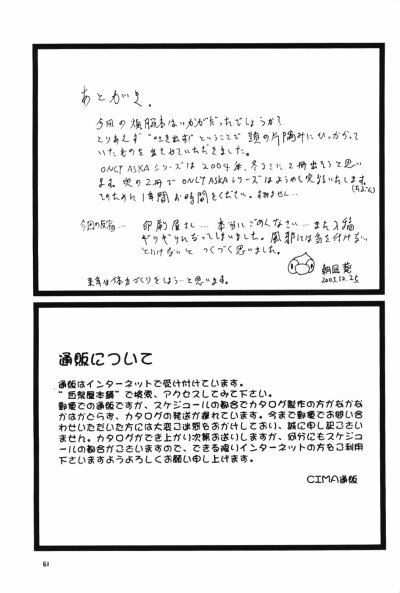 あとがき。
今回の煩脳本はいかがだったでしょうか?
とりあえず"吐き出す"ということで 頭の片隅みにひっかかって
いたものを出させていただきました。
ONLY ASKAシリーズは2004年、冬コミに2冊出そうと思い
ます。次の2冊で ONLY ASKAシリーズはようやく完結いたします。
(たぶん)
そのために1年間お時間をください。すみません…
今回の反省… 印刷屋さん… 本当にごめんなさい… また入稿
ギリギリになってしまいました。風邪には気を付けない
といけない と つくづく思いました。
来年は体力づくりをしよう…と思います。
2003.12.25
通販について
通販はインターネットで受け付けています。
屋本舗"で検索、アクセスしてみて下さい。
郵便での通販ですが、スケジュールの都合でカタログ製作の方がなかな
かはかどらず、カタログの発送が遅れています。今まで郵便でお問い合
わせいただいた方には大変ご迷惑をおかけしており、誠に申し訳ござい
ません。カタログができ上がり次第お送りしますが、何分にもスケジュ
ールの都合がございますので、できる限りインターネットの方をご利用
下さいますようよろしくお願い申し上げます。
CIMA通販
61